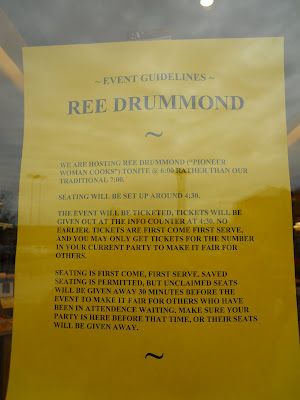 ~ EVENT GUIDELINES ~
REE DRUMMOND
~
WE ARE HOSTING REE DRUMMOND ("PIONEER
WOMAN COOKS") TONITE @ 6:00 RATHER THAN OUR
TRADITIONAL 7:00.
SEATING WILL BE SET UP AROUND 4:30.
THE EVENT WILL BE TICKETED, TICKETS WILL BE
GIVEN OUT AT THE INFO COUNTER AT 4:30. NO
EARLIER. TICKETS ARE FIRST COME FIRST SERVE,
AND YOU MAY ONLY GET TICKETS FOR THE NUMBER
IN YOUR CURRENT PARTY TO MAKE IT FAIR FOR
OTHERS.
SEATING IS FIRST COME, FIRST SERVE. SAVED
SEATING IS PERMITTED, BUT UNCLAIMED SEATS
WILL BE GIVEN AWAY 30 MINUTES BEFORE THE
EVENT TO MAKE IT FAIR FOR OTHERS WHO HAVE
BEEN IN ATTENDENCE WAITING. MAKE SURE YOUR
PARTY IS HERE BEFORE THAT TIME, OR THEIR SEATS
WILL BE GIVEN AWAY.
~